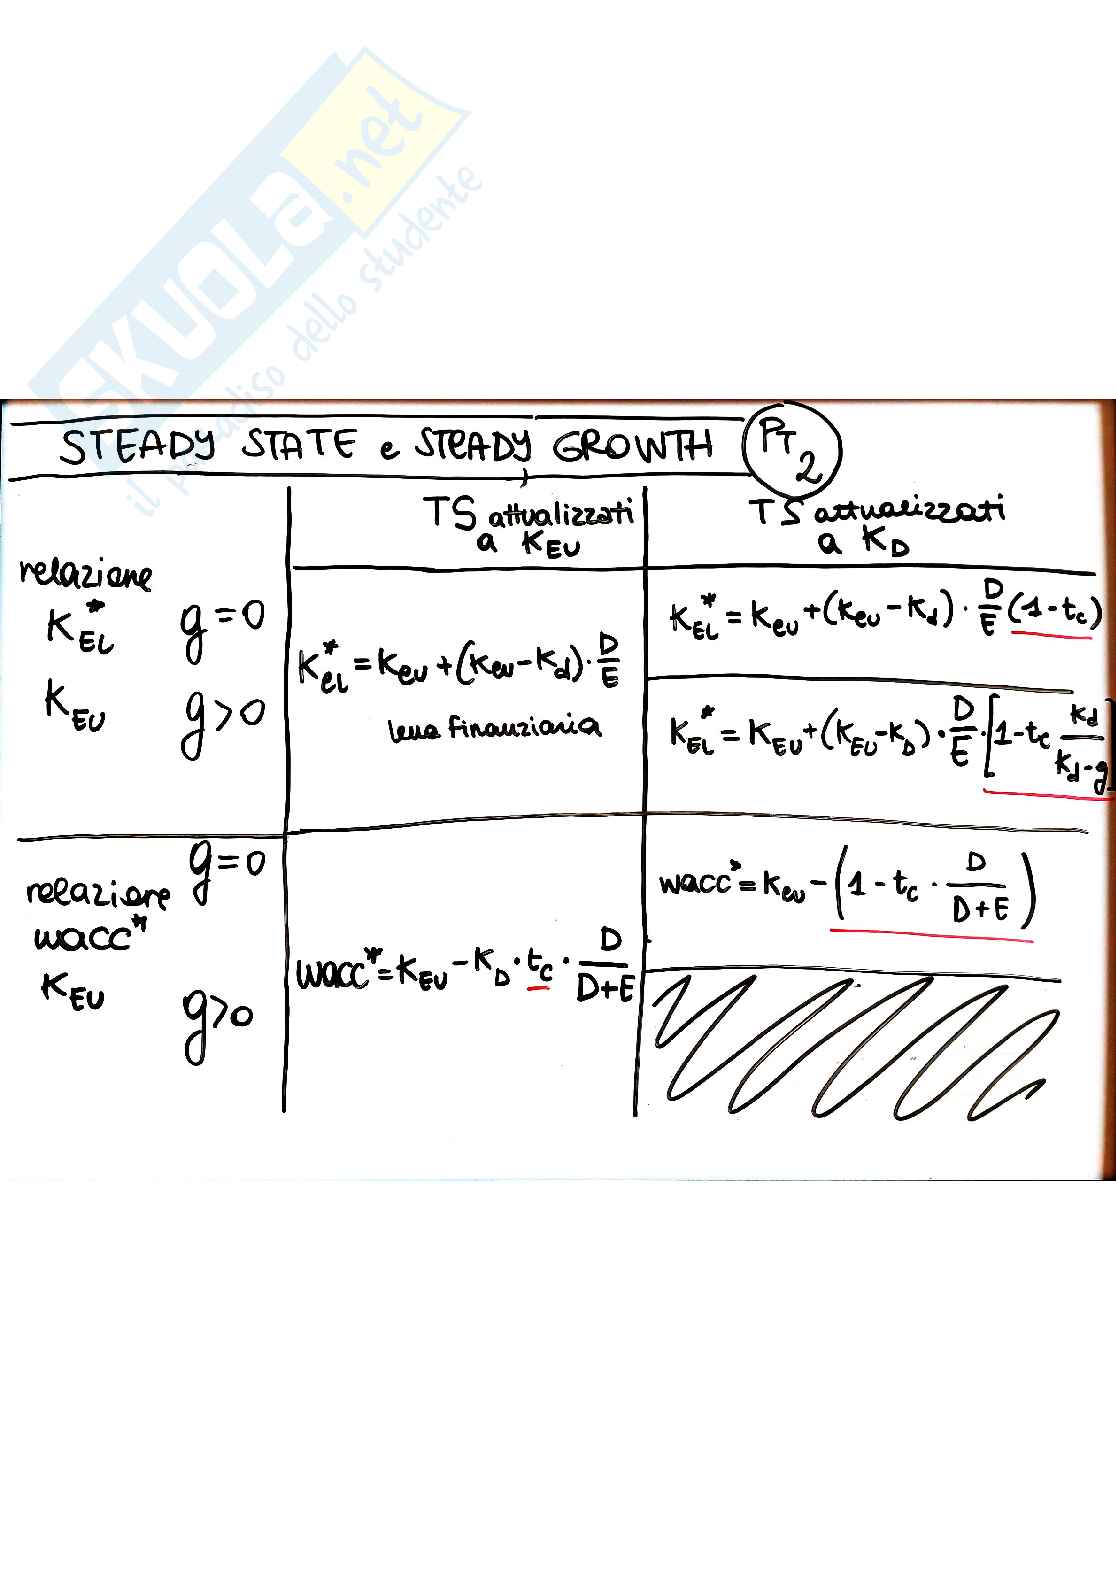 SKUOLA.net
il paradiso dello studente
STEADY STATE e STEADY GROWTH PT 2
TS attualizzati a KEU
TS attualizzati a KD
relazione
K*EL g=0
KEU g>0
K*el = Keu + (Keu - Kd) · D/E
leva finanziaria
K*EL = Keu + (Keu - Kd) · D/E (1-tc)
K*EL = KEU + (KEU - KD) · D/E · [1 - tc Kd/Kd-g]
g=0
relazione
wacc*
KEU
g>0
wacc* = KEU - KD · tc · D/D+E
wacc* = Keu - (1 - tc · D/D+E)